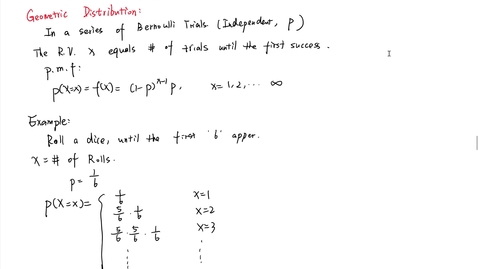 Geometric Distribution:
In a series of Bernoulli Trials (Independent, p)
The R.V. x equals # of trials until the first success.
p.m.f:
p(X=x) = f(x) = (1-p)^{x-1} p, x=1,2,... ∞
Example:
Roll a dice, until the first '6' apper.
X = # of Rolls.
p = 1/6
p(X=x) = { 1/6 x=1
5/6 · 1/6 x=2
5/6 · 5/6 · 1/6 x=3
⋮ ⋮